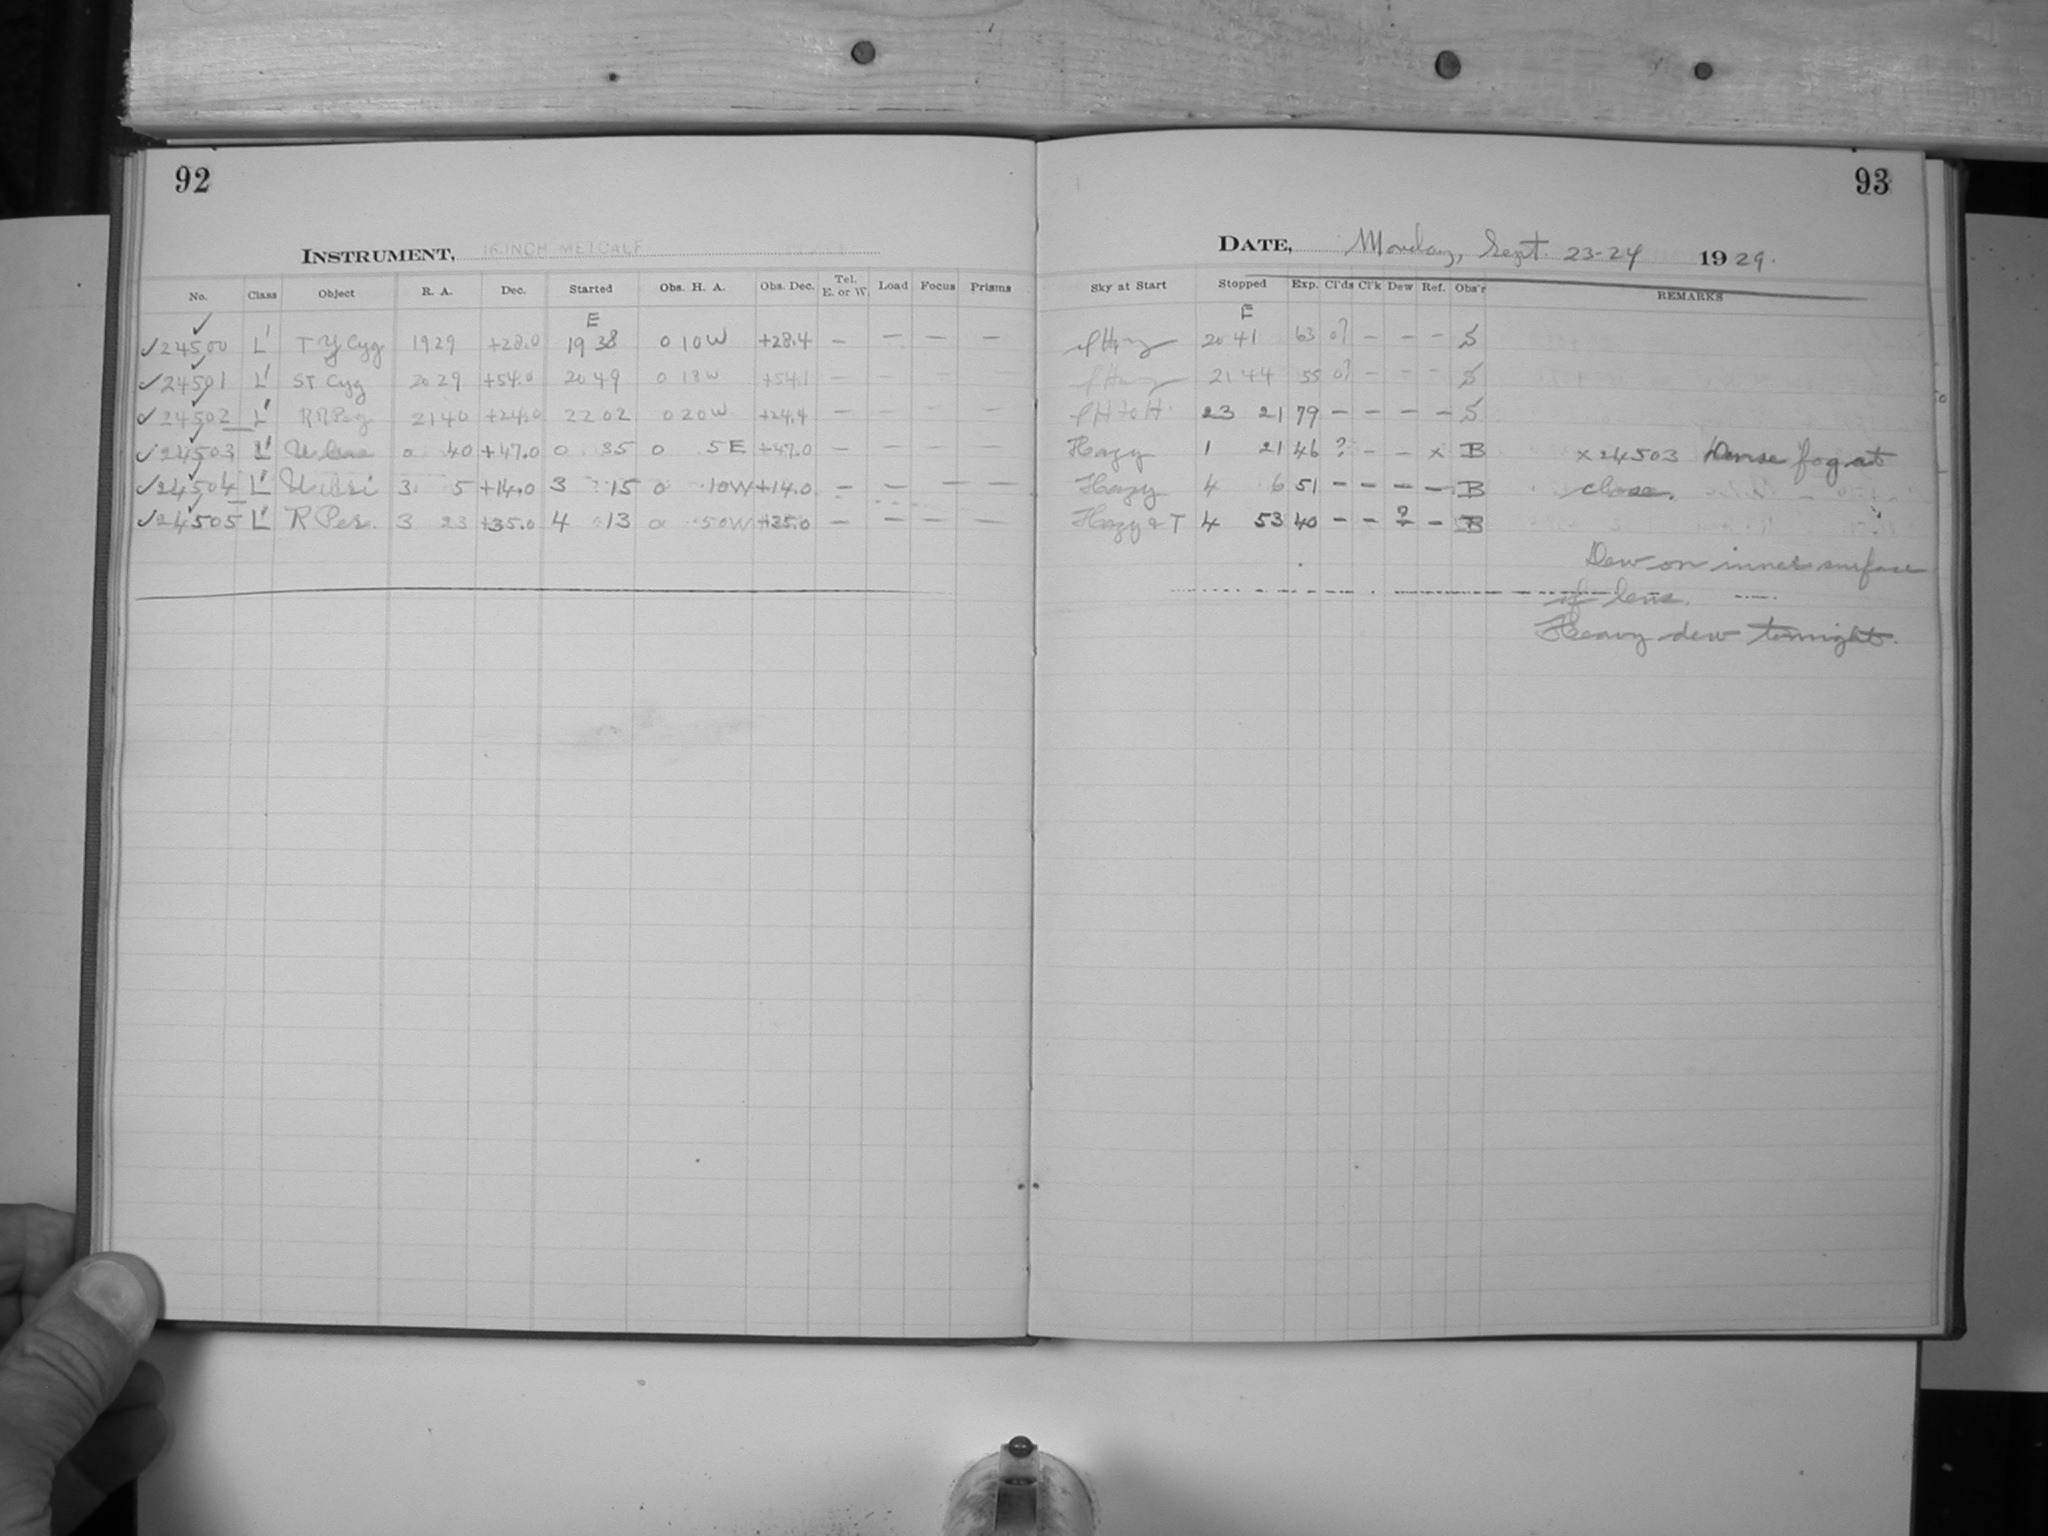 92
INSTRUMENT, 16-INCH METCALF
No. Class Object R. A. Dec. Started Obs. H. A. Obs. Dec. Tel. E. or W. Load Focus Prisms
E
✓24500 L' TY Cyg 19 29 +28.0 19 38 0 10W +28.4 — — — —
✓24501 L' ST Cyg 20 29 +54.0 20 49 0 18W +54.1 — — — —
✓24502 L' RR Peg 21 40 +24.0 22 02 0 20W +24.4 — — — —
✓24503 L' 0 40 +47.0 0 35 0 5E +47.0 — — — —
✓24504 L' U Ari 3 5 +14.0 3 15 0 10W +14.0 — — — —
✓24505 L' R Per. 3 23 +35.0 4 13 0 50W +35.0 — — — —
93
DATE, Monday, Sept. 23-24 1929.
Sky at Start Stopped Exp. Cl'ds Cl'k Dew Ref. Obs'r REMARKS
E
20 41 63 0? — — — S
21 44 55 0? — — — S
23 21 79 — — — — S
Hazy 1 21 46 ? — — x B x24503 Dense fog at
Hazy 4 6 51 — — — — B close.
Hazy & T 4 53 40 — — ? — B
Dew on inner surface
of lens.
Heavy dew tonight.